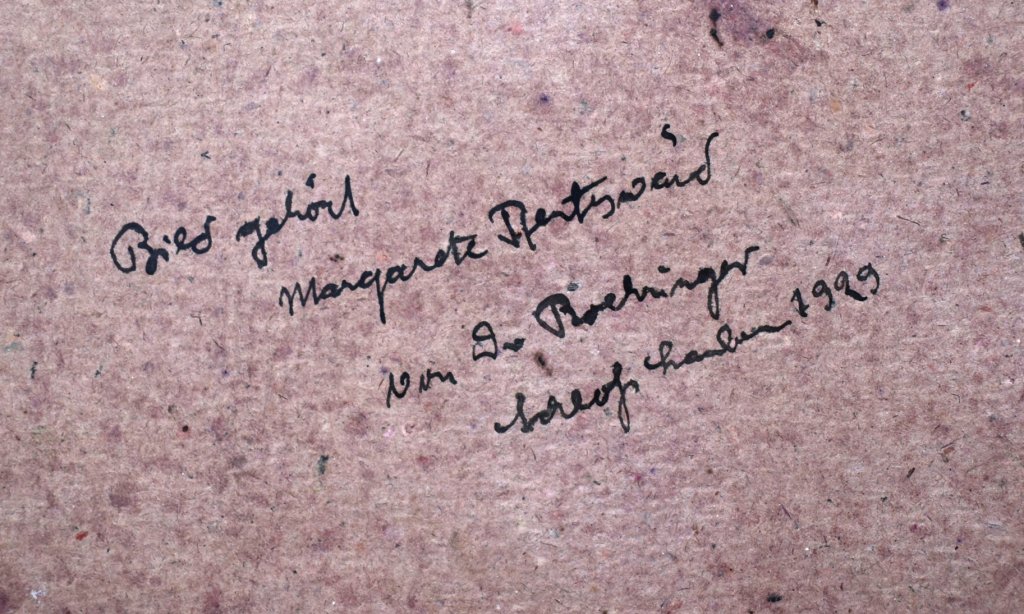 Bild gehört
Margarete
von Dr Boehringer
Schloß 1929